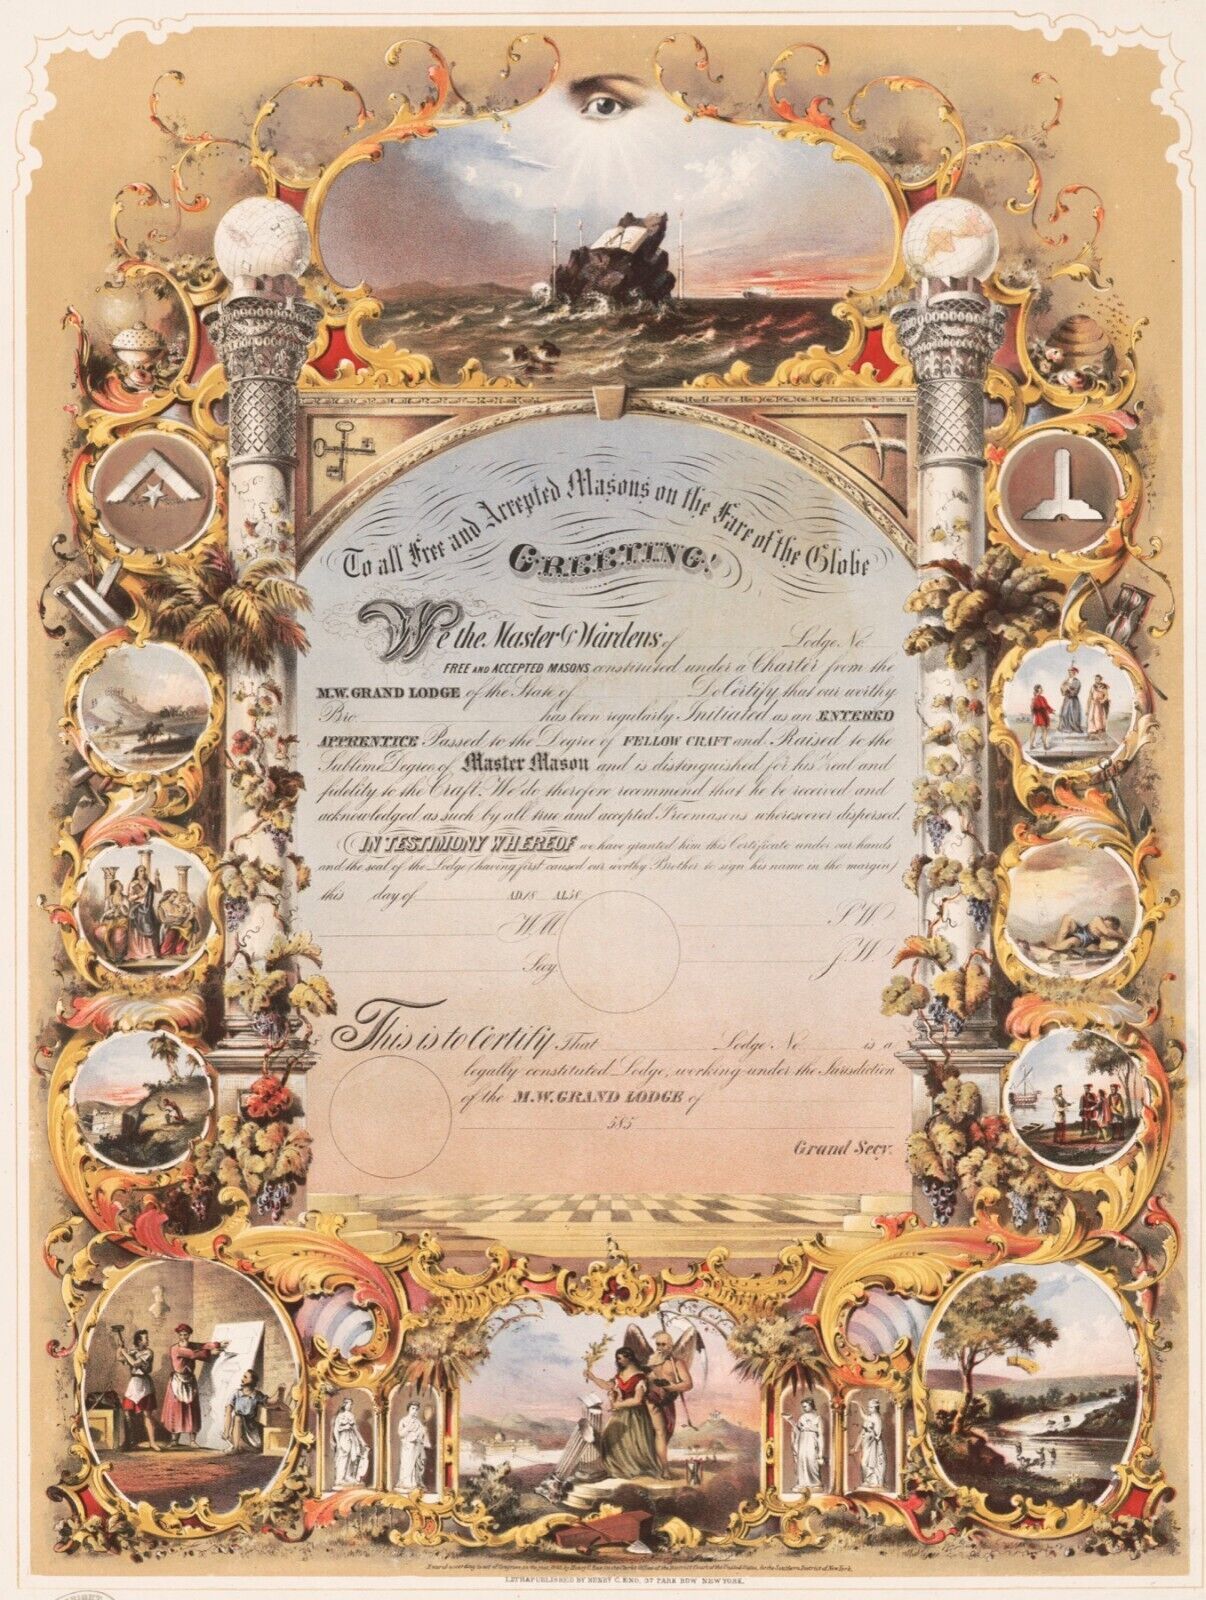 To all Free and Accepted Masons on the Face of the Globe
GREETING!
We the Master & Wardens of Lodge No
FREE AND ACCEPTED MASONS constituted under a Charter from the
M.W. GRAND LODGE of the State of Do Certify that our worthy
Bro. has been regularly Initiated as an ENTERED
APPRENTICE Passed to the Degree of FELLOW CRAFT and Raised to the
Sublime Degree of Master Mason and is distinguished for his zeal and
fidelity to the Craft. We do therefore recommend that he be received and
acknowledged as such by all true and accepted Freemasons wheresoever dispersed.
IN TESTIMONY WHEREOF we have granted him this Certificate under our hands
and the seal of the Lodge (having first caused our worthy Brother to sign his name in the margin)
this day of A.D. 18 A.L. 58
W.M. S.W.
Secy. J.W.
This is to Certify That Lodge No is a
legally constituted Lodge, working under the Jurisdiction
of the M.W. GRAND LODGE of
585
Grand Secy.
Entered according to act of Congress in the year by Henry C. Eno in the Clerk's Office of the District Court of the United States, for the Southern District of New York.
LITH & PUBLISHED BY HENRY C. ENO, 37 PARK ROW NEW YORK.